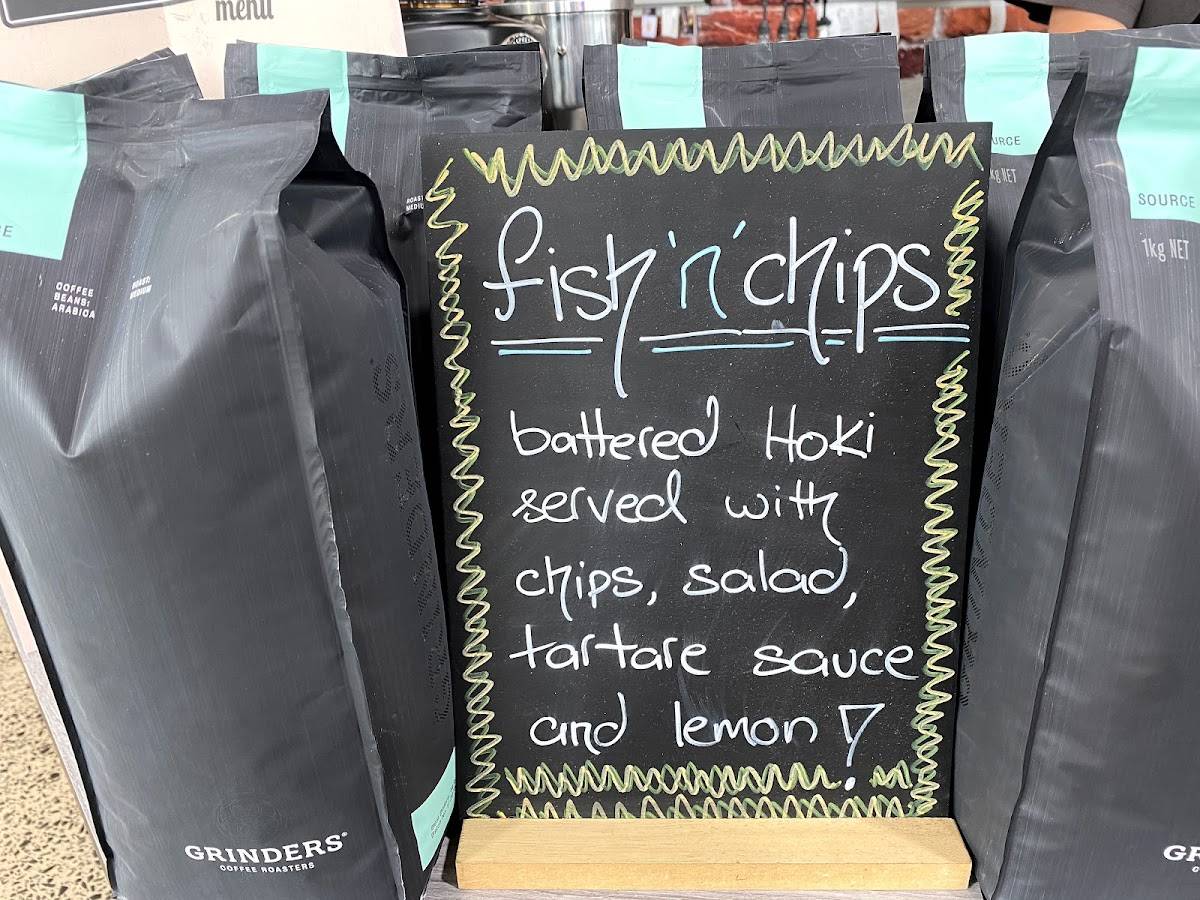 menu
fish 'n' chips
battered Hoki
served with
chips, salad,
tartare sauce
and lemon!
COFFEE
BEANS:
ARABICA
ROAST:
MEDIUM
GRINDERS
COFFEE ROASTERS
SOURCE
1kg NET
URCE
kg NET